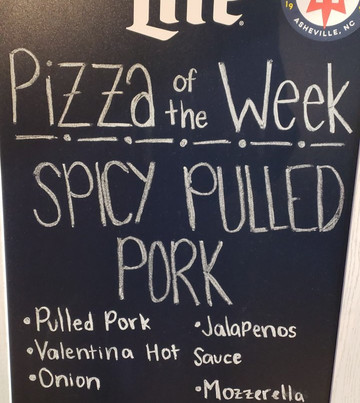 Lite
19
ASHEVILLE, NC
Pizza of the Week
SPICY PULLED
PORK
•Pulled Pork
•Valentina Hot Sauce
•Onion
•Jalapenos
•Mozzerella